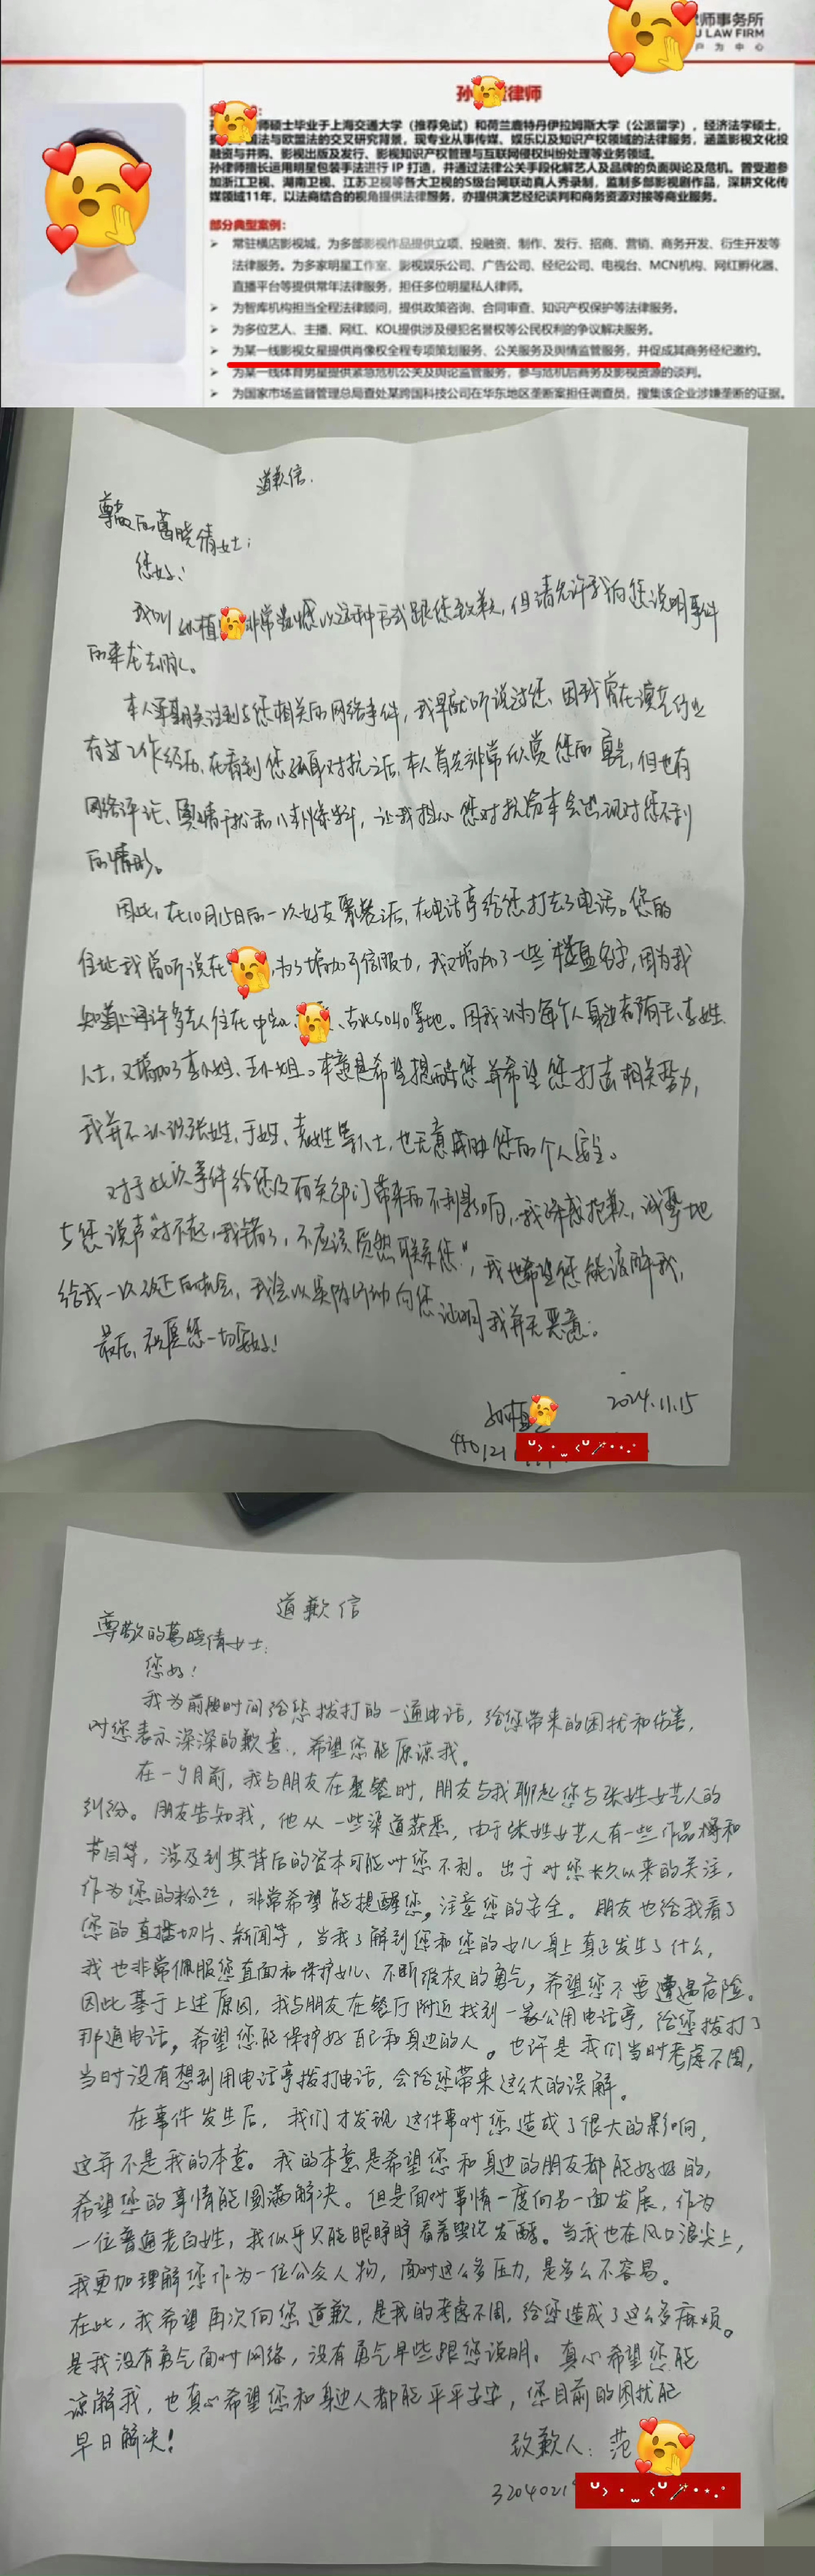 师事务所
U LAW FIRM
户 为 中 心
孙 律师
师硕士毕业于上海交通大学（推荐免试）和荷兰鹿特丹伊拉姆斯大学（公派留学），经济法学硕士，
国法与欧盟法的交叉研究背景，现专业从事传媒、娱乐以及知识产权领域的法律服务，涵盖影视文化投
融资与并购、影视出版及发行、影视知识产权管理与互联网侵权纠纷处理等业务领域。
孙律师擅长运用明星包装手法进行 IP 打造，并通过法律公关手段化解艺人及品牌的负面舆论及危机。曾受邀参
加浙江卫视、湖南卫视、江苏卫视等各大卫视的S级台网联动真人秀录制，监制多部影视剧作品，深耕文化传
媒领域11年，以法商结合的视角提供法律服务，亦提供演艺经纪谈判和商务资源对接等商业服务。
部分典型案例：
常驻横店影视城，为多部影视作品提供立项、投融资、制作、发行、招商、营销、商务开发、衍生开发等
法律服务。为多家明星工作室、影视娱乐公司、广告公司、经纪公司、电视台、MCN机构、网红孵化器、
直播平台等提供常年法律服务，担任多位明星私人律师。
为智库机构担当全程法律顾问，提供政策咨询、合同审查、知识产权保护等法律服务。
为多位艺人、主播、网红、KOL提供涉及侵犯名誉权等公民权利的争议解决服务。
为某一线影视女星提供肖像权全程专项策划服务、公关服务及舆情监管服务，并促成其商务经纪邀约。
为某一线体育男星提供紧急危机公关及舆论监管服务，参与危机后商务及影视资源的谈判。
为国家市场监督管理总局查处某跨国科技公司在华东地区垄断案担任调查员，搜集该企业涉嫌垄断的证据。
道歉信.
尊敬的葛晓倩女士：
您好！
我叫孙植 非常遗憾以这种方式跟您致歉，但请允许我向您说明事件
的来龙去脉。
本人 关注到与您相关的网络事件，我早就听说过您、因我曾在演艺行业
有过工作经历、在看到您 对抗之后，本人首先非常欣赏您的勇气，但也有
网络评论、舆情干扰和八卦爆料，让我担心您对抗资本会出现对您不利
的情形。
因此，在10月15日的一次好友聚餐后，在电话亭给您打去了电话。您的
住址我曾听说在 ，为了增加可信服力，我又增加了一些楼盘名字，因为我
知道上海许多艺人住在中 、古北SOHO等地。因我认为每个人身边都有王、李姓
人士，又增加了李小姐、王小姐。本意是希望提醒您 并希望您打击相关势力，
我并不认识张姓、于姓、 姓等人士，也无意威胁您的个人安全。
对于此次事件给您及有关部门带来的不利影响，我深感抱歉，诚挚地
与您说声“对不起，我错了，不应该贸然联系您”，我也希望您能谅解我，
给我一次改正的机会，我会以实际行动向您证明我并无恶意。
最后，祝愿您一切安好！
孙植 2024.11.15
道歉信
尊敬的葛晓倩女士：
您好！
我为前段时间给您拨打的一通电话，给您带来的困扰和伤害，
对您表示深深的歉意，希望您能原谅我。
在一个月前，我与朋友在聚餐时，朋友与我聊起您与张姓女艺人的
纠纷。朋友告知我，他从一些渠道获悉，由于张姓女艺人有一些作品 和
节目等，涉及到其背后的资本可能对您不利。出于对您长久以来的关注，
作为您的粉丝，非常希望能提醒您，注意您的安全。朋友也给我看了
您的直播切片、新闻等，当我了解到您和您的女儿身上真正发生了什么，
我也非常佩服您直面和保护女儿、不断维权的勇气，希望您不要遭遇危险。
因此基于上述原因，我与朋友在餐厅附近找到一家公用电话亭，给您拨打了
那通电话，希望您能保护好自己和身边的人。也许是我们当时考虑不周，
当时没有想到用电话亭拨打电话，会给您带来这么大的误解。
在事件发生后，我们才发现这件事对您造成了很大的影响，
这并不是我的本意。我的本意是希望您和身边的朋友都能好好的，
希望您的事情能圆满解决。但是面对事情一度向另一面发展，作为
一位普通老百姓，我似乎只能眼睁睁看着舆论发酵。当我也在风口浪尖上，
我更加理解您作为一位公众人物，面对这么多压力，是多么不容易。
在此，我希望再次向您道歉，是我的考虑不周，给您造成了这么多麻烦。
是我没有勇气面对网络，没有勇气早些跟您说明。真心希望您能
谅解我，也真心希望您和身边人都能平平安安，您目前的困扰能
早日解决！
致歉人：范
3204021